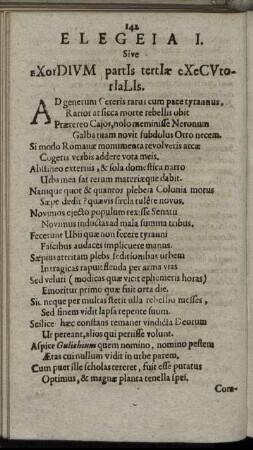 142
ELEGEIA I.
Sive
EXorDIVM partIs tertIæ eXeCVto-
rIaLIs.
AD generum Cereris rarus cum pace tyrannus,
Rarior at sicca morte rebellis obit
Prætereo Cajos, nolo meminisse Neronum
Galbatuam novit subdolus Otto necem.
Si modo Romanæ monumenta revolveris arcæ
Cogeris verbis addere vota meis.
Abstineo externis, & sola domestica narro
Urbs mea sat rerum materiæque dabit.
Namque quot & quantos plebeia Colonia motus
Sæpe dedit? quavis sæcla tulêre novos,
Novimus ejecto populum rexisse Senatu
Novimus inductas ad mala summa tribus,
Fecerunt Ubii quæ non fecere tyranni
Fascibus audaces implicuere manus.
Sæpius attritam plebs seditionibus urbem
Intragicas rapuit stenda per arma vias
Sed veluti (modicas quæ vicit ephemeris horas)
Emoritur primo quæ fuit orta die.
Sic neque per multas stetit ulla rebellio messes,
Sed finem vidit lapsa repente suum.
Scilicet hæc constans remanet vindicta Deorum
Ut pereant, alios qui periisse volunt.
Aspice Gulichium quem nomino, nomino pestem
Ætas cui nullum vidit in urbe parem,
Cum puer ille scholas tereret, fuit esse putatus
Optimus, & magnæ planta tenella spei,
Com-